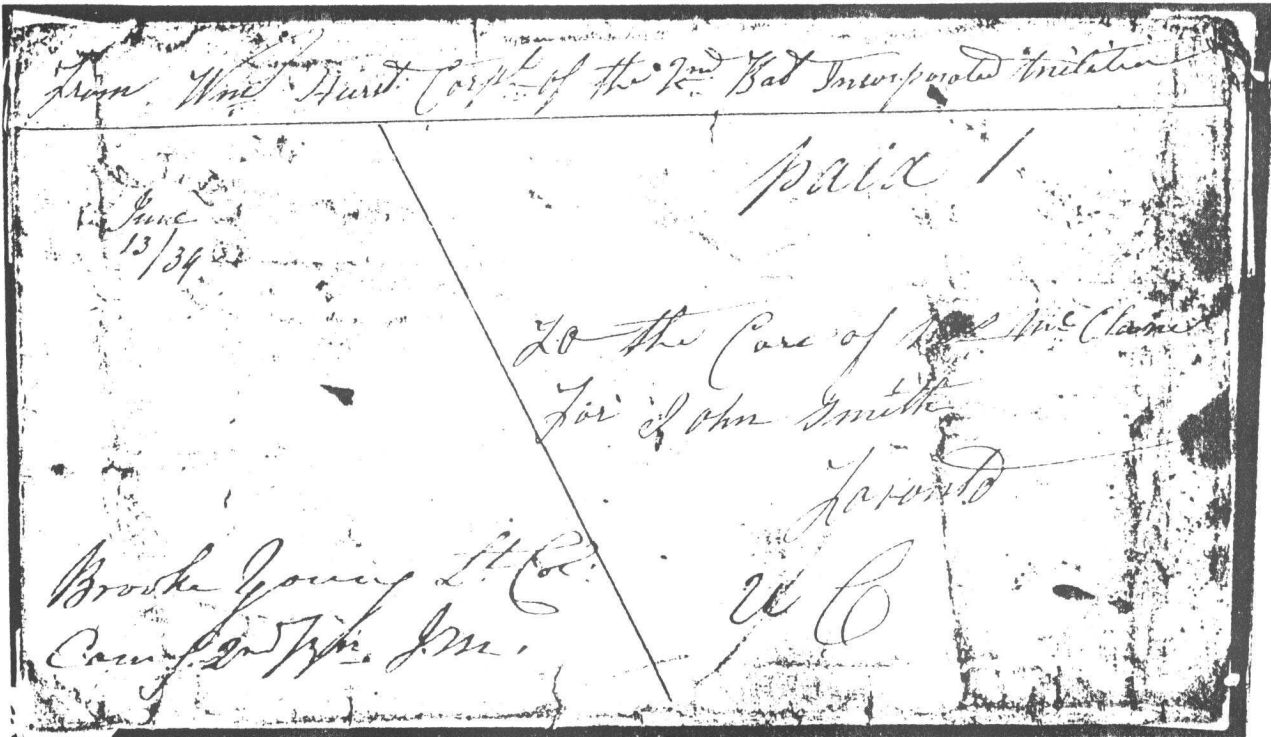 From Wm Hurst Corpl of the 2nd Bat Incorporated Militia
paid 1
June
13/39
To the Care of Mc Clane
For John Smith
Toronto
U C
Brooke Young Lt Col.
Comg. 2nd Bn. I.M.